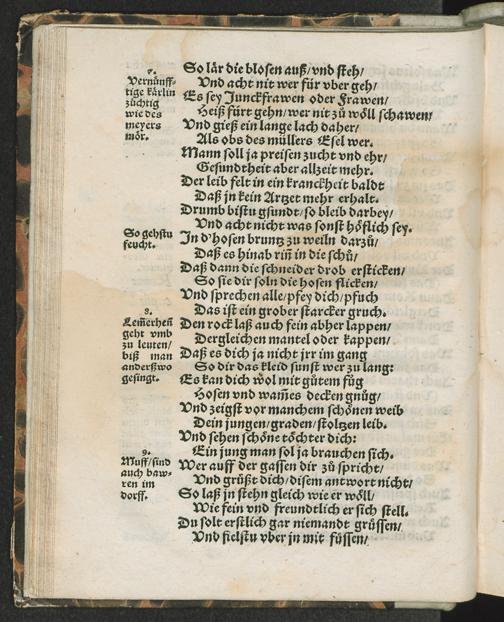 So lär die blosen auß/ vnd steh/
Vnd acht nit wer für vber geh/
Es sey Junckfrawen oder Frawen/
Heiß fürt gehn/ wer nit zů wöll schawen/
Vnd gieß ein lange lach daher/
Als obs des müllers Esel wer.
Mann soll ja preisen zucht vnd ehr/
Gesundtheit aber allzeit mehr.
Der leib felt in ein kranckheit baldt
Daß jn kein Artzet mehr erhalt.
Drumb bistu gsundt/ so bleib darbey/
Vnd acht nicht was sonst höflich sey.
In d'hosen bruntz zu weiln darzů/
Daß es hinab riñ in die schů/
Daß dann die schneider drob ersticken/
So sie dir soln die hosen flicken/
Vnd sprechen alle/ pfey dich/ pfuch
Das ist ein grober starcker gruch.
Den rock laß auch fein abher lappen/
Dergleichen mantel oder kappen/
Daß es dich ja nicht jrr im gang
So dir das kleid sunst wer zu lang:
Es kan dich wol mit gůtem fůg
Hosen vnd wam̃es decken gnůg/
Vnd zeigst vor manchem schönen weib
Dein jungen/ graden/ stoltzen leib.
Vnd sehen schöne töchter dich:
Ein jung man sol ja brauchen sich.
Wer auff der gassen dir zů spricht/
Vnd grüßt dich/ disem antwort nicht/
So laß jn stehn gleich wie er wöll/
Wie fein vnd freundtlich er sich stell.
Du solt erstlich gar niemandt grüssen/
Vnd fielstu vber jn mit füssen/
7.
Vernünff-
tige kärlin
züchtig
wie des
meyers
mör.
So gehstu
feucht.
8.
Lem̃erheñ
geht vmb
zu leuten/
biß man
anderßwo
gesingt.
9.
Muff/ sind
auch baw-
ren im
dorff.